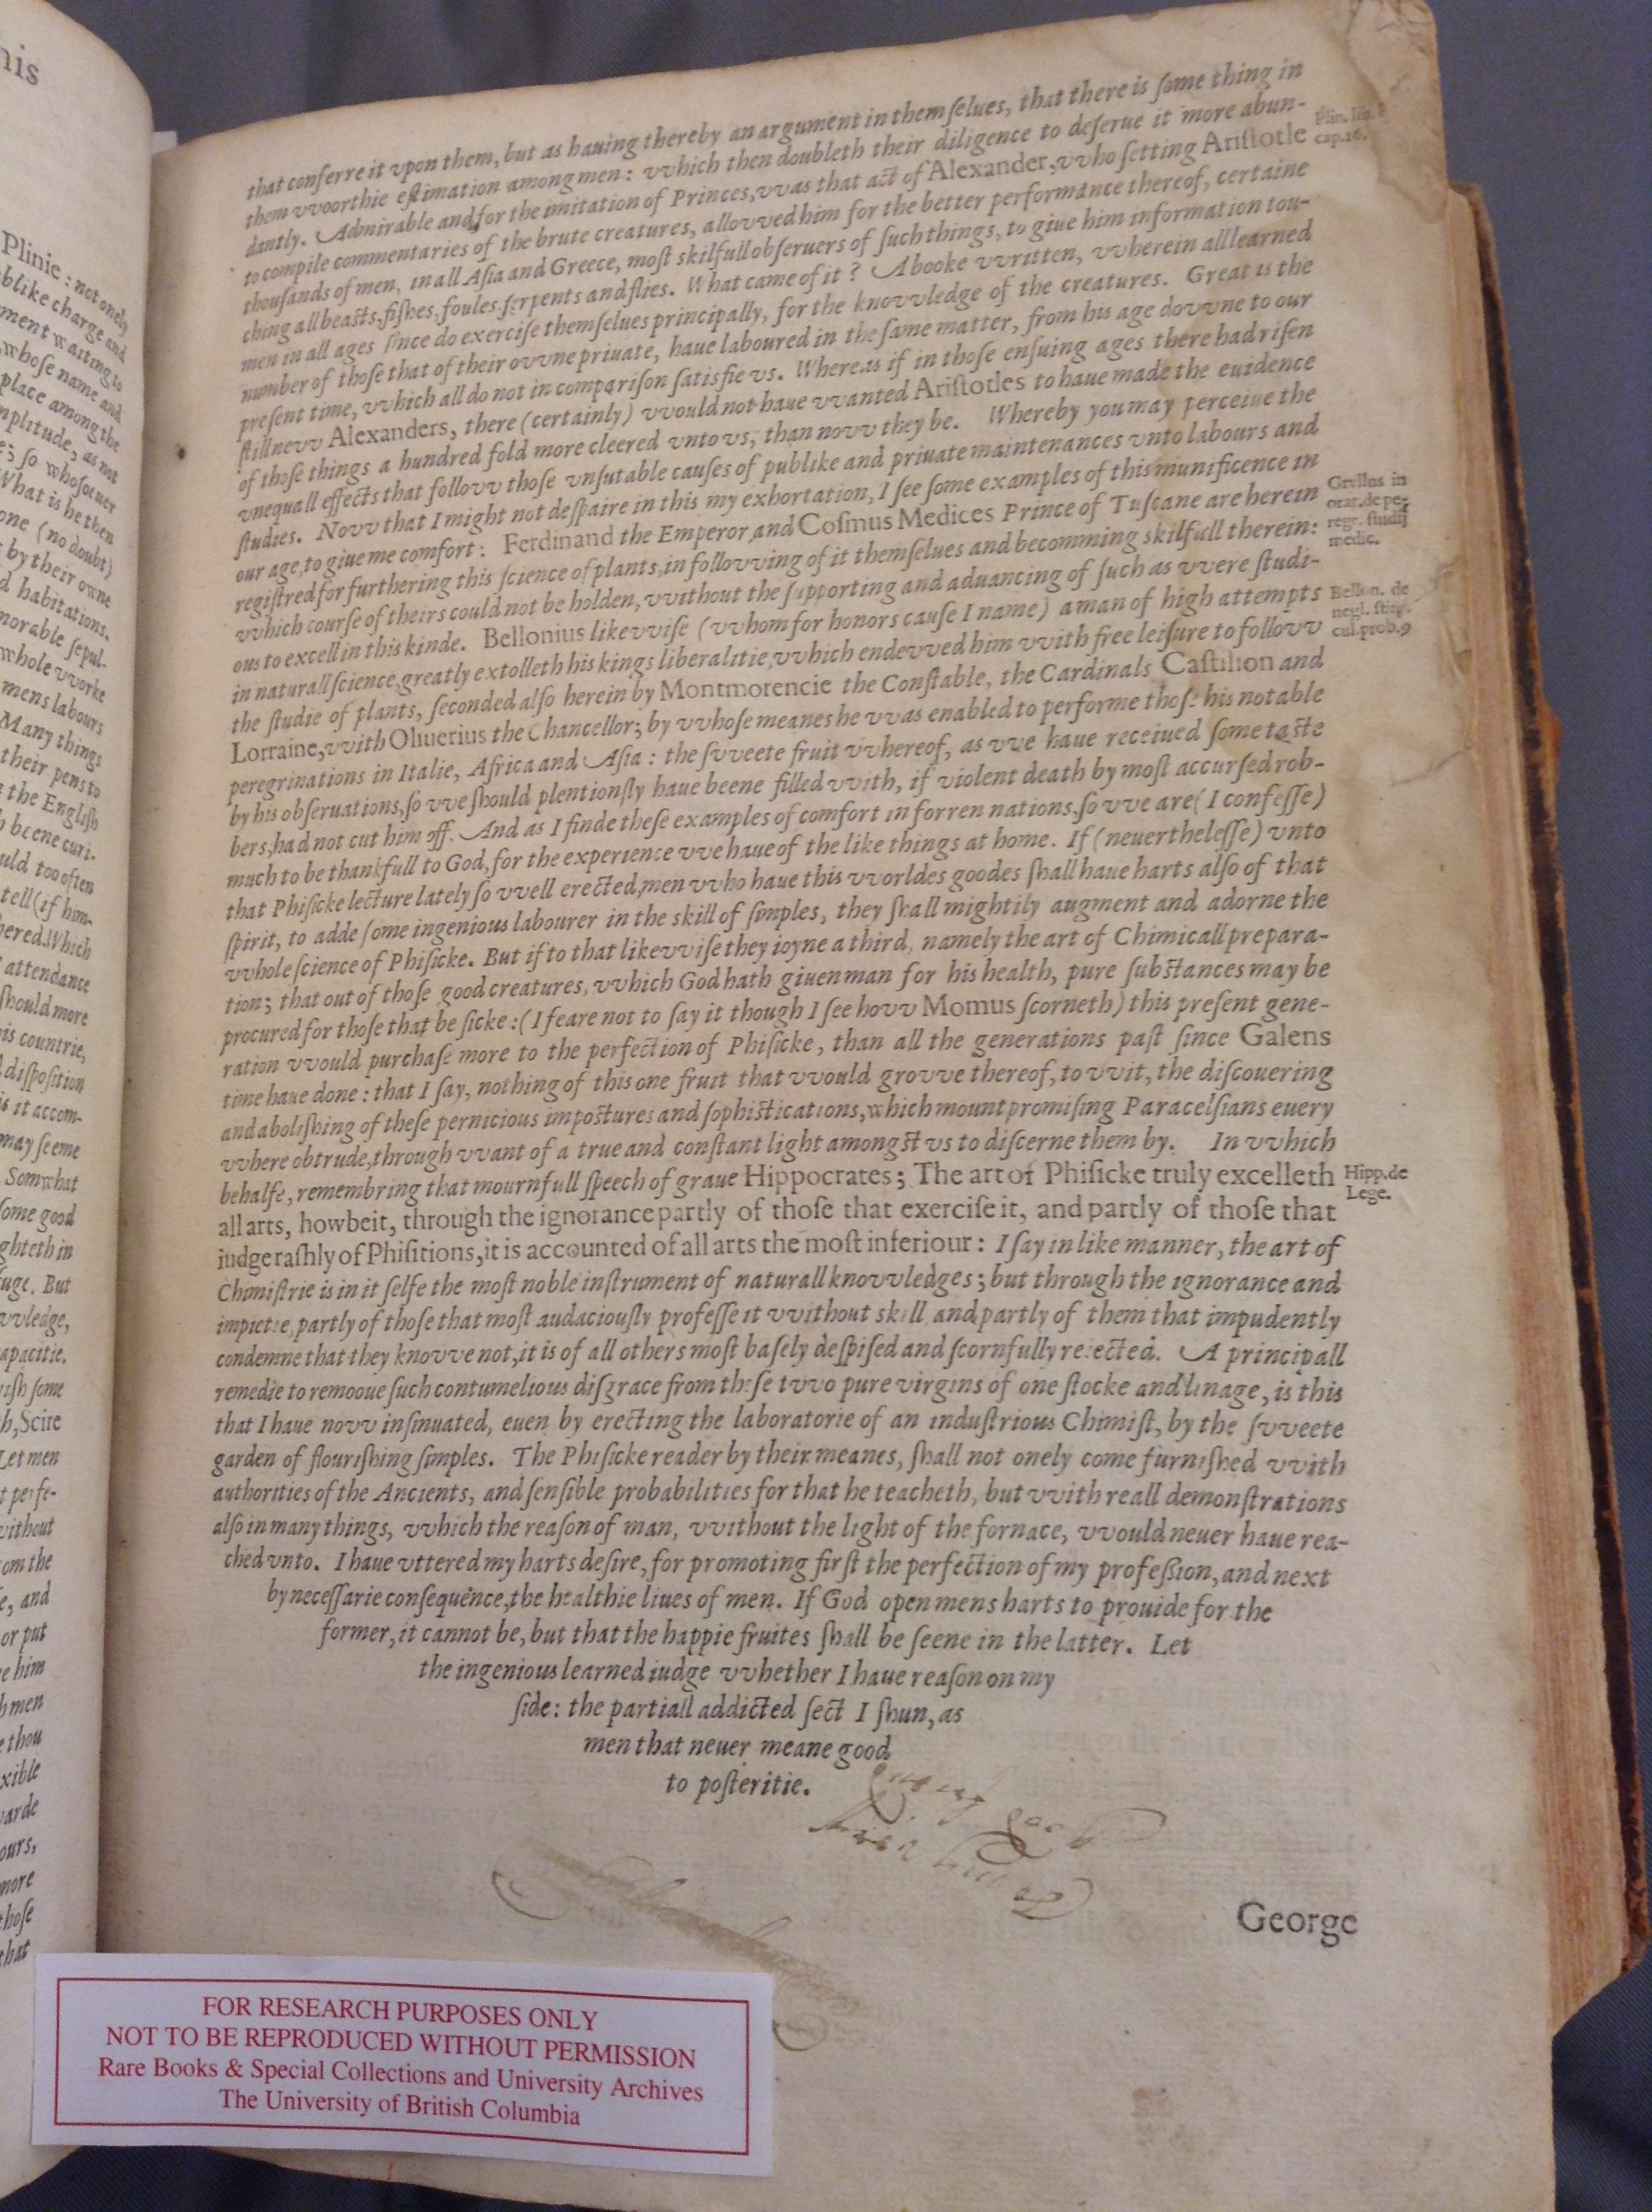 his
Plinie: not onely
blike charge and
ment waiting to
whose name and
place among the
mplitude, as not
; so whosoeuer
What is he then
one (no doubt)
by their owne
d habitations.
morable sepul-
whole vvorke
mens labours
Many things
their pens to
the English
beene curi-
uld too often
tell (if him-
hered. Which
attendance
should more
his countrie,
disposition
is it accom-
may seeme
Somwhat
some good
ghteth in
uge. But
vvledge,
apacitie.
ish some
h, Scire
Let men
t perfe-
vithout
om the
e, and
or put
e him
hmen
e thou
xible
varde
ours,
more
those
that
that conferre it vpon them, but as hauing thereby an argument in themſelues, that there is ſome thing in
them vvoorthie eſtimation among men: vvhich then doubleth their diligence to deſerue it more abun-
dantly. Admirable and for the imitation of Princes, vvas that act of Alexander, vvho ſetting Ariſtotle
to compile commentaries of the brute creatures, allovved him for the better performance thereof, certaine
thouſands of men, in all Aſia and Greece, moſt skilfull obſeruers of ſuch things, to giue him information tou-
ching all beaſts, fiſhes, foules, ſerpents and flies. What came of it? A booke vvritten, vvherein all learned
men in all ages ſince do exerciſe themſelues principally, for the knovvledge of the creatures. Great is the
number of thoſe that of their ovvne priuate, haue laboured in the ſame matter, from his age dovvne to our
preſent time, vvhich all do not in compariſon ſatisfie vs. Whereas if in thoſe enſuing ages there had riſen
ſtill nevv Alexanders, there (certainly) vvould not haue vvanted Ariſtotles to haue made the euidence
of thoſe things a hundred fold more cleered vnto vs, than novv they be. Whereby you may perceiue the
vnequall effects that follovv thoſe vnſutable cauſes of publike and priuate maintenances vnto labours and
ſtudies. Novv that I might not deſpaire in this my exhortation, I ſee ſome examples of this munificence in
our age, to giue me comfort: Ferdinand the Emperor and Coſmus Medices Prince of Tuſcane are herein
regiſtred for furthering this ſcience of plants, in follovving of it themſelues and becomming skilfull therein:
vvhich courſe of theirs could not be holden, vvithout the ſupporting and aduancing of ſuch as vvere ſtudi-
ous to excell in this kinde. Bellonius likevviſe (vvhom for honors cauſe I name) a man of high attempts
in naturall ſcience, greatly extolleth his kings liberalitie, vvhich endevved him vvith free leiſure to follovv
the ſtudie of plants, ſeconded alſo herein by Montmorencie the Conſtable, the Cardinals Caſtilion and
Lorraine, vvith Oliuerius the Chancellor; by vvhoſe meanes he vvas enabled to performe thoſe his notable
peregrinations in Italie, Africa and Aſia: the ſvveete fruit vvhereof, as vve haue receiued ſome taſte
by his obſeruations, ſo vve ſhould plentiouſly haue beene filled vvith, if violent death by moſt accurſed rob-
bers, had not cut him off. And as I finde theſe examples of comfort in forren nations, ſo vve are (I confeſſe)
much to be thankfull to God, for the experience vve haue of the like things at home. If (neuertheleſſe) vnto
that Phiſicke lecture lately ſo vvell erected, men vvho haue this vvorldes goodes ſhall haue harts alſo of that
ſpirit, to adde ſome ingenious labourer in the skill of ſimples, they ſhall mightily augment and adorne the
vvhole ſcience of Phiſicke. But if to that likevviſe they ioyne a third, namely the art of Chimicall prepara-
tion; that out of thoſe good creatures, vvhich God hath giuen man for his health, pure ſubſtances may be
procured for thoſe that be ſicke: (I feare not to ſay it though I ſee hovv Momus ſcorneth) this preſent gene-
ration vvould purchaſe more to the perfection of Phiſicke, than all the generations paſt ſince Galens
time haue done: that I ſay, nothing of this one fruit that vvould grovve thereof, to vvit, the diſcouering
and aboliſhing of theſe pernicious impoſtures and ſophiſtications, which mount promiſing Paracelſians euery
vvhere obtrude, through vvant of a true and conſtant light amongſt vs to diſcerne them by. In vvhich
behalfe, remembring that mournfull ſpeech of graue Hippocrates; The art of Phiſicke truly excelleth
all arts, howbeit, through the ignorance partly of thoſe that exerciſe it, and partly of thoſe that
iudge raſhly of Phiſitions, it is accounted of all arts the moſt inferiour: I ſay in like manner, the art of
Chimiſtrie is in it ſelfe the moſt noble inſtrument of naturall knovvledges; but through the ignorance and
impietie, partly of thoſe that moſt audaciouſly profeſſe it vvithout skill, and partly of them that impudently
condemne that they knovve not, it is of all others moſt baſely deſpiſed and ſcornfully reiected. A principall
remedie to remooue ſuch contumelious diſgrace from theſe tvvo pure virgins of one ſtocke and linage, is this
that I haue novv inſinuated, euen by erecting the laboratorie of an induſtrious Chimiſt, by the ſvveete
garden of flouriſhing ſimples. The Phiſicke reader by their meanes, ſhall not onely come furniſhed vvith
authorities of the Ancients, and ſenſible probabilities for that he teacheth, but vvith reall demonſtrations
alſo in many things, vvhich the reaſon of man, vvithout the light of the fornace, vvould neuer haue rea-
ched vnto. I haue vttered my harts deſire, for promoting firſt the perfection of my profeſſion, and next
by neceſſarie conſequence, the healthie liues of men. If God open mens harts to prouide for the
former, it cannot be, but that the happie fruites ſhall be ſeene in the latter. Let
the ingenious learned iudge vvhether I haue reaſon on my
ſide: the partiall addicted ſect I ſhun, as
men that neuer meane good
to poſteritie.
George
Plin. lib. 8
cap. 16.
Grillus in
orat. de pe-
regr. ſtudij
medic.
Bellon. de
negl. ſtirp.
cul. prob. 9
Hipp. de
Lege.
FOR RESEARCH PURPOSES ONLY
NOT TO BE REPRODUCED WITHOUT PERMISSION
Rare Books & Special Collections and University Archives
The University of British Columbia